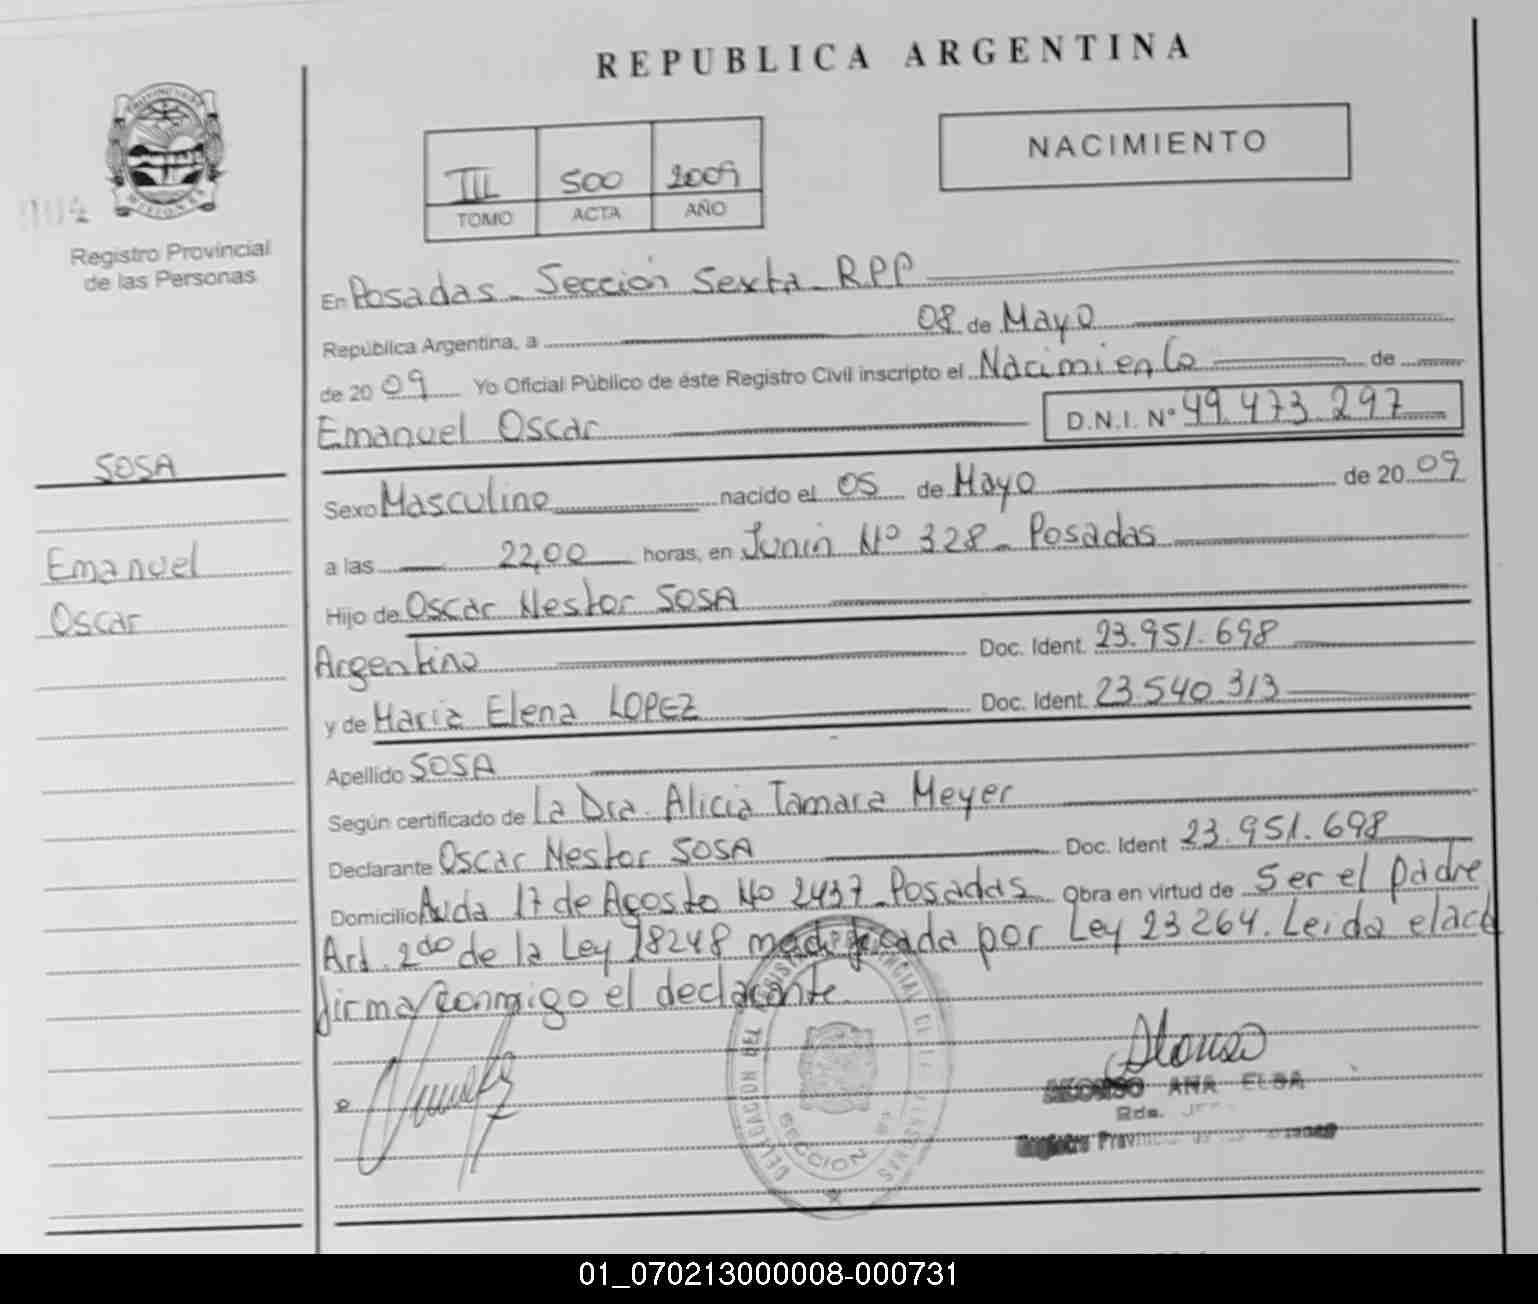 REPUBLICA ARGENTINA
PROVINCIA DE
MISIONES
004
Registro Provincial
de las Personas
III 500 2009
TOMO ACTA AÑO
NACIMIENTO
En Posadas - Sección Sexta - RPP
República Argentina, a 08 de Mayo
de 20 09 Yo Oficial Público de éste Registro Civil inscripto el Nacimiento de
Emanuel Oscar D.N.I. Nº 49.473.297
SOSA
Emanuel
Oscar
Sexo Masculino nacido el 05 de Mayo de 20 09
a las 22,00 horas, en Junin Nº 328 - Posadas
Hijo de Oscar Nestor SOSA
Argentino Doc. Ident. 23.951.698
y de Maria Elena LOPEZ Doc. Ident. 23.540.313
Apellido SOSA
Según certificado de La Dra. Alicia Tamara Meyer
Declarante Oscar Nestor SOSA Doc. Ident 23.951.698
Domicilio Avda 17 de Agosto No 2437 - Posadas Obra en virtud de Ser el padre
Art. 2do de la Ley 18248 modificada por Ley 23264. Leida el acta
firma conmigo el declarante.
DELEGACION DEL REGISTRO PROVINCIAL DE LAS PERSONAS
SECCION 6ª
ANA ELBA
Registro
01_070213000008-000731